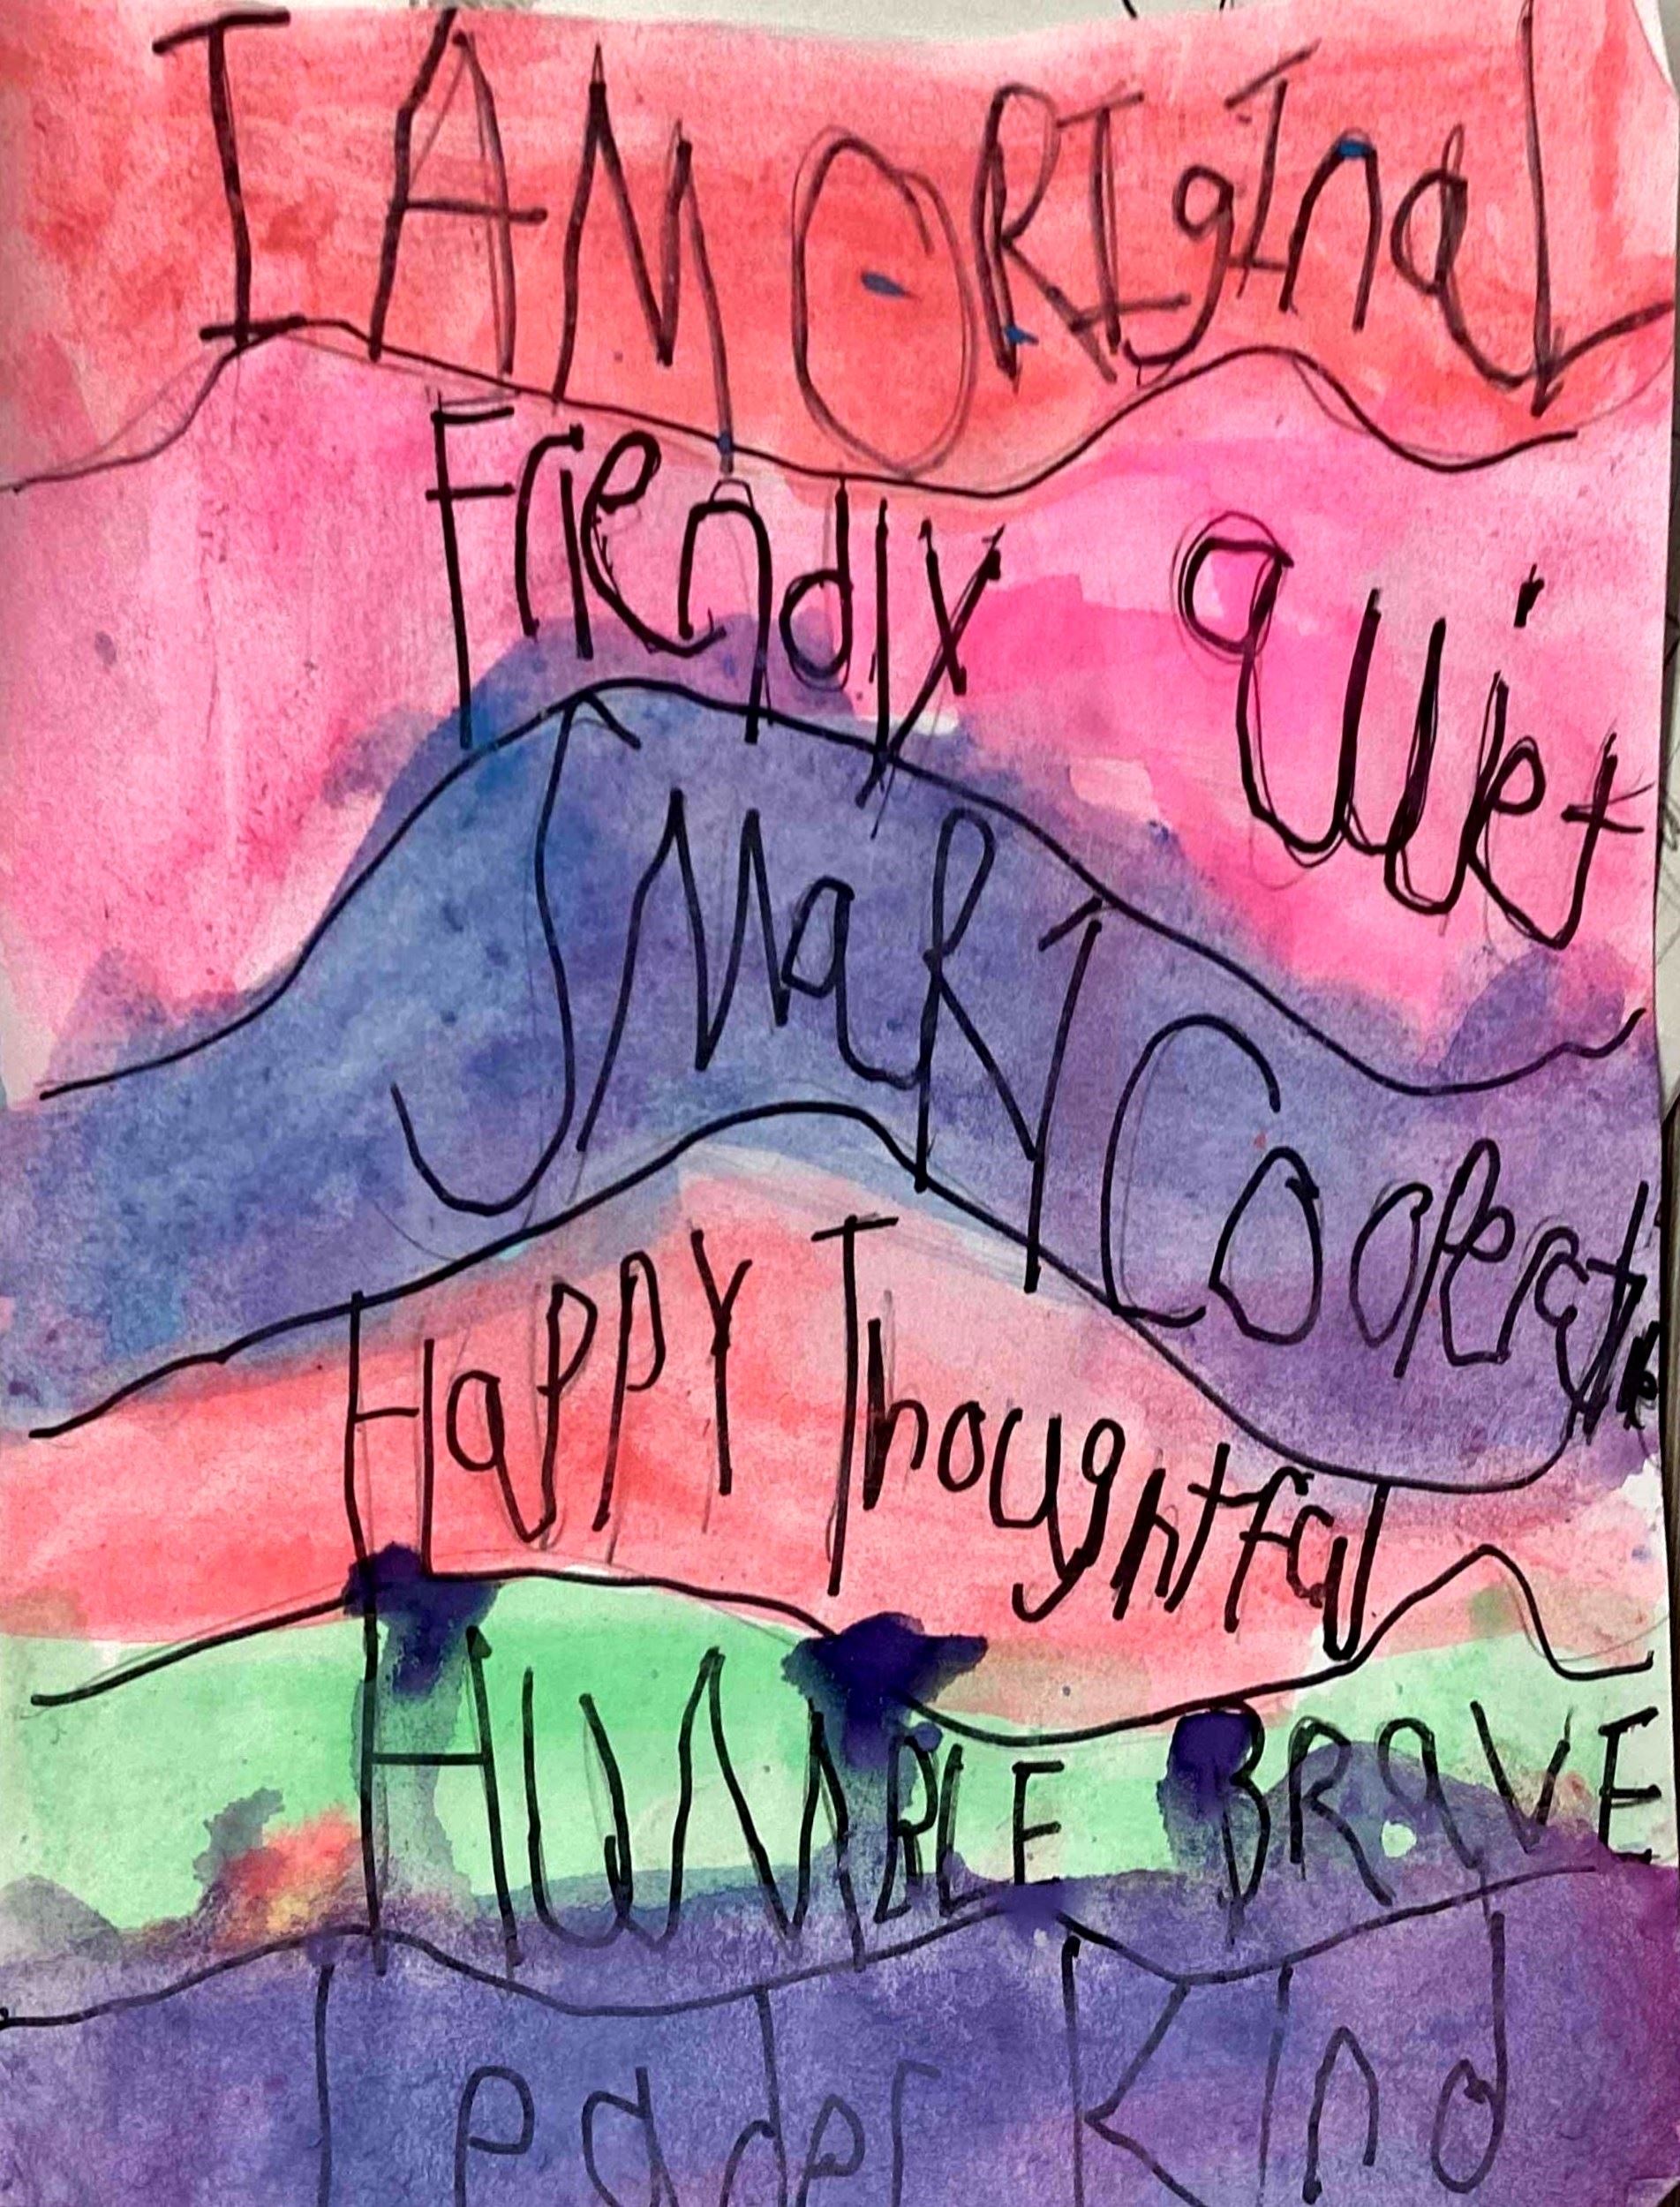 I AM ORIgInaL
Friendly quiet
SMaRT CooPerative
HaPPY Thoughtful
HUMBLE BRaVE
Leader KInd